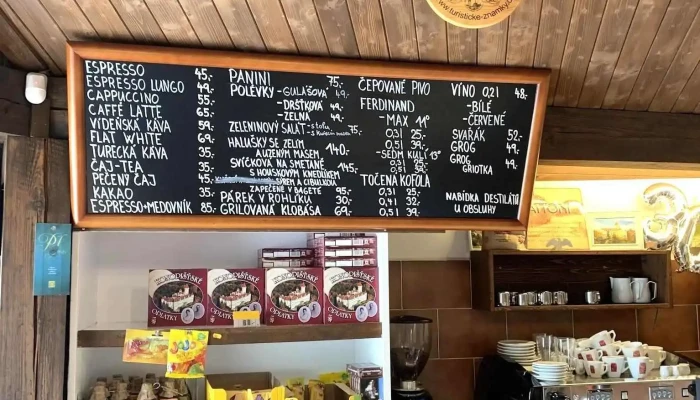 www.turisticke-znamky.cz
ESPRESSO 45,-
ESPRESSO LUNGO 49,-
CAPPUCCINO 55,-
CAFFÉ LATTE 65,-
VÍDEŇSKÁ KÁVA 59,-
FLAT WHITE 69,-
TURECKÁ KÁVA 35,-
ČAJ-TEA 35,-
PEČENÝ ČAJ 45,-
KAKAO 35,-
ESPRESSO+MEDOVNÍK 85,-
PANINI 75,-
POLÉVKY -GULÁŠOVÁ 49,-
-DRŠŤKOVÁ 49,-
-ZELNÁ 49,-
ZELENINOVÝ SALÁT
75,-
HALUŠKY SE ZELÍM
AUZENÝM MASEM 140,-
SVÍČKOVÁ NA SMETANĚ
S HOUSKOVÝM KNEDLÍKEM 145,-
SÝREM A CIBULKOU
ZAPEČENÉ V BAGETĚ 95,-
PÁREK V ROHLÍKU 30,-
GRILOVANÁ KLOBÁSA 69,-
ČEPOVANÉ PIVO
FERDINAND
-MAX 11°
0,3l 25,-
0,5l 39,-
-SEDM KULÍ 13°
0,3l 25,-
0,5l 39,-
TOČENÁ KOFOLA
0,3l 25,-
0,4l 32,-
0,5l 39,-
VÍNO 0,2l 48,-
-BÍLÉ
-ČERVENÉ
SVAŘÁK 52,-
GROG 49,-
GROG 49,-
GRIOTKA
NABÍDKA DESTILÁTŮ
U OBSLUHY
KONOPIŠŤSKÉ
OPLATKY
KONOPIŠŤSKÉ
OPLATKY
KONOPIŠŤSKÉ
OPLATKY
KONOPIŠŤSKÉ
OPLATKY